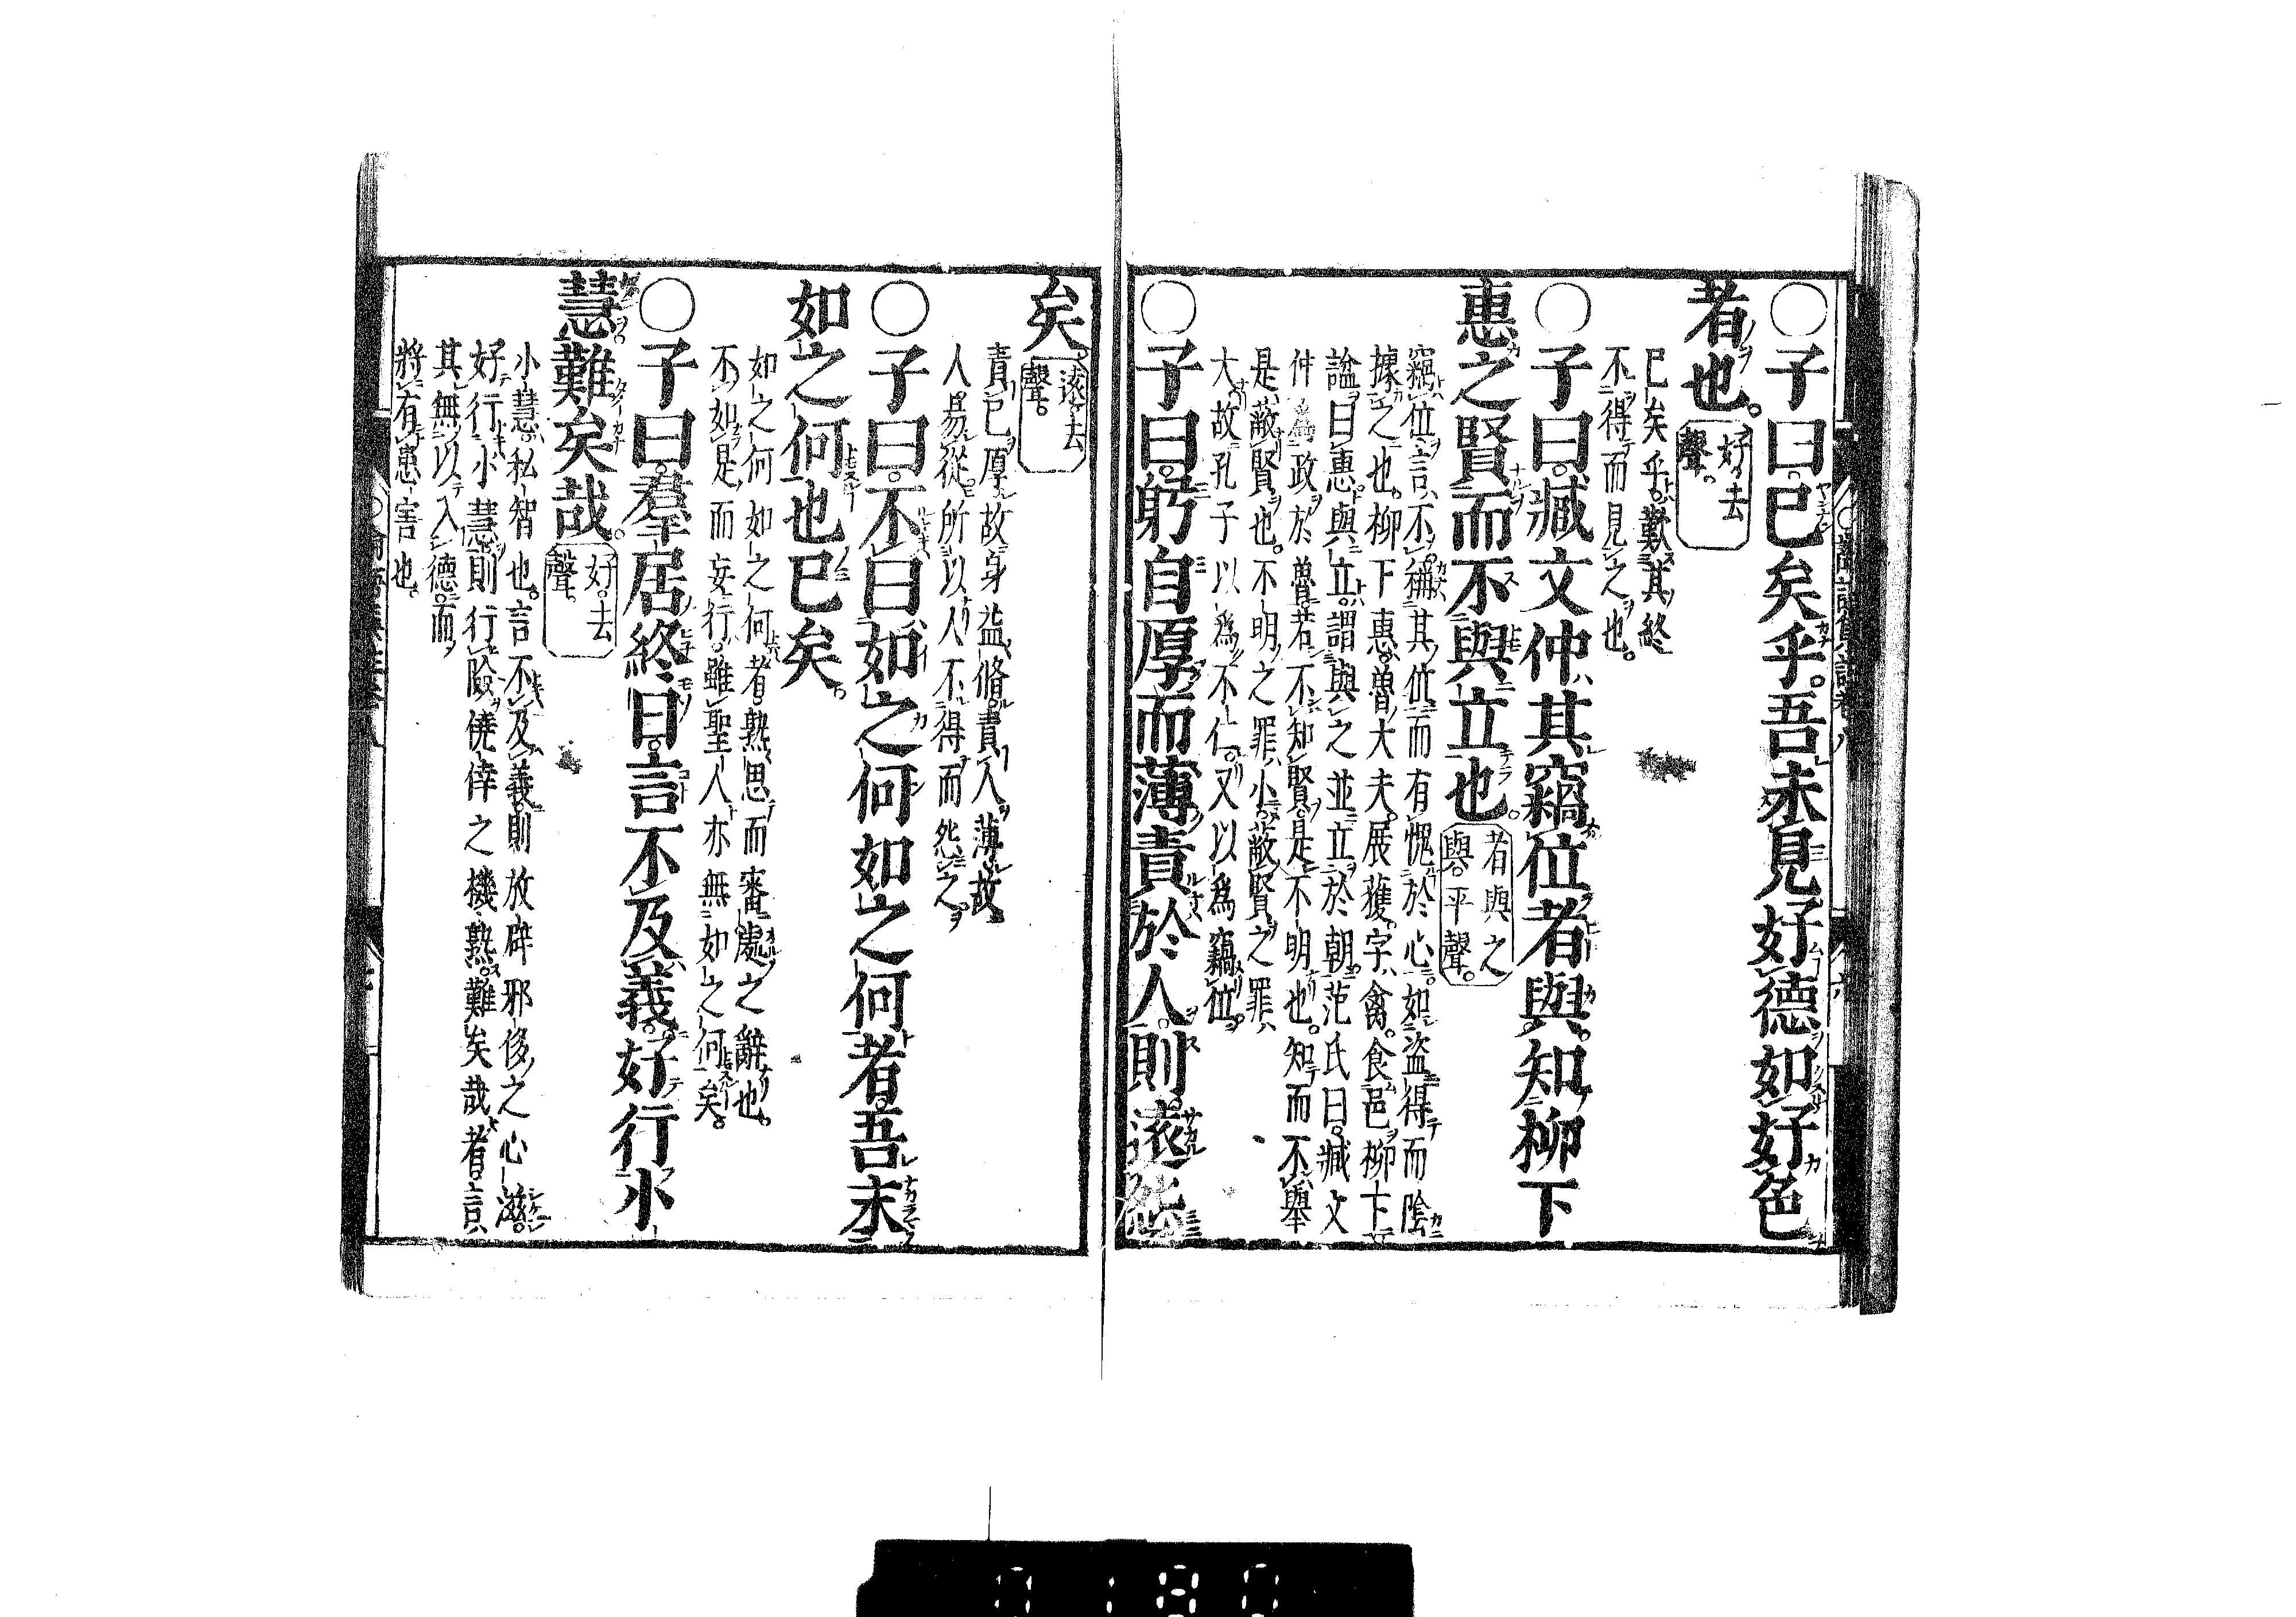 〇子曰。已矣乎。吾未見好德如好色
者也。好。去聲。
已矣乎。歎其終
不得而見之也。
〇子曰。臧文仲其竊位者與。知柳下
惠之賢而不與立也。者與之與。平聲。
竊位。言不稱其位。而有愧於心。如盜得而陰
據之也。柳下惠。魯大夫。展獲。字禽。食邑柳下
謚曰惠。與立。謂與之並立於朝。范氏曰。臧文
仲爲政於魯。若不知賢。是不明也。知而不舉
是蔽賢也。不明之罪小。蔽賢之罪
大。故孔子以爲不仁。又以爲竊位。
〇子曰。躬自厚而薄責於人。則遠怨
矣。遠。去聲。
責已厚。故身益脩。責人薄。故
人易從。所以人不得而怨之。
〇子曰。不曰如之何如之何者。吾末
如之何也已矣
如之何如之何者。熟思而審處之辭也。
不如是而妄行。雖聖人亦無如之何矣。
〇子曰。羣居終日。言不及義。好行小
慧。難矣哉。好。去聲。
小慧。私智也。言不及義。則放辟邪侈之心滋。
好行小慧。則行險僥倖之機熟。難矣哉者。言
其無以入德。而
將有患害也。
0180